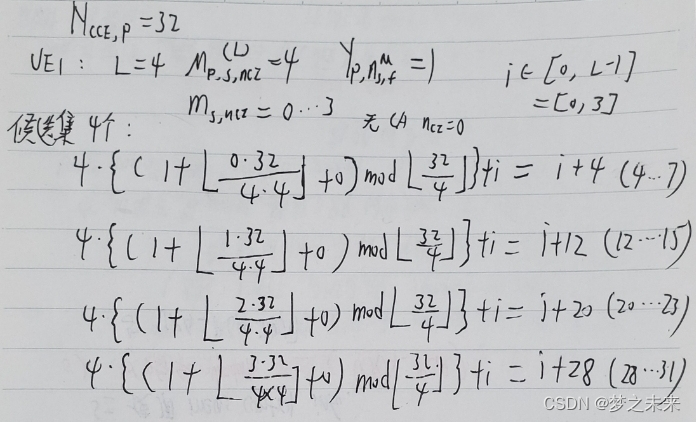 N_CCE,P = 32
UE1: L=4 M_{P,S,nCI}^{(L)} = 4 Y_{P,n_{s,f}^μ} = 1 i∈[0, L-1]
m_{s,nCI} = 0…3 无CA nCI=0 =[0,3]
候选集 4个:
4·{(1+⌊0·32/4·4⌋+0) mod ⌊32/4⌋}+i = i+4 (4…7)
4·{(1+⌊1·32/4·4⌋+0) mod ⌊32/4⌋}+i = i+12 (12…15)
4·{(1+⌊2·32/4·4⌋+0) mod ⌊32/4⌋}+i = i+20 (20…23)
4·{(1+⌊3·32/4×4⌋+0) mod ⌊32/4⌋}+i = i+28 (28…31)
CSDN @梦之未来